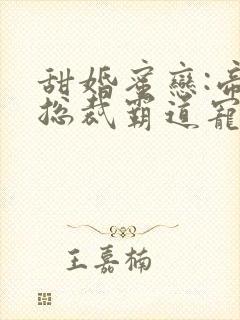 甜婚蜜戀:帝
總裁霸道寵
王嘉楠